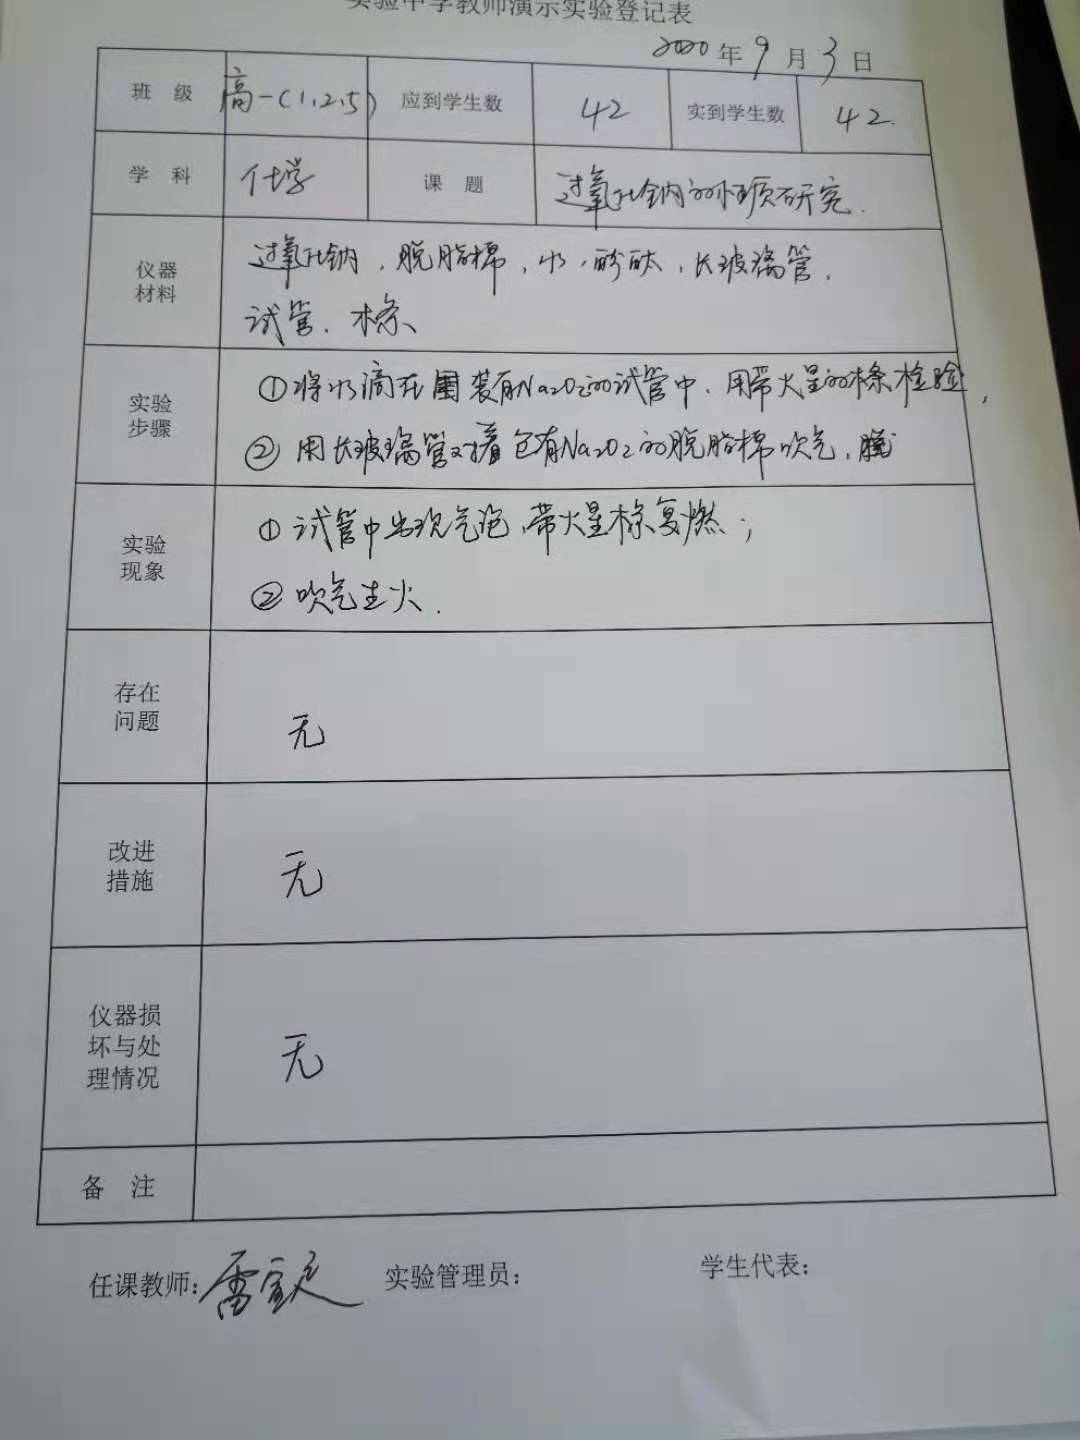 实验中学教师演示实验登记表
2020年9月3日
班 级 高一(1,2,5) 应到学生数 42 实到学生数 42.
学 科 化学 课 题 过氧化钠的性质研究.
仪器
材料
过氧化钠,脱脂棉,水,酚酞,长玻璃管,
试管、木条、
实验
步骤
①将水滴在装有Na2O2的试管中,用带火星的木条检验,
②用长玻璃管对着包有Na2O2的脱脂棉吹气,
实验
现象
①试管中出现气泡,带火星木条复燃;
②吹气生火.
存在
问题
无
改进
措施
无
仪器损
坏与处
理情况
无
备 注
任课教师: 实验管理员: 学生代表: